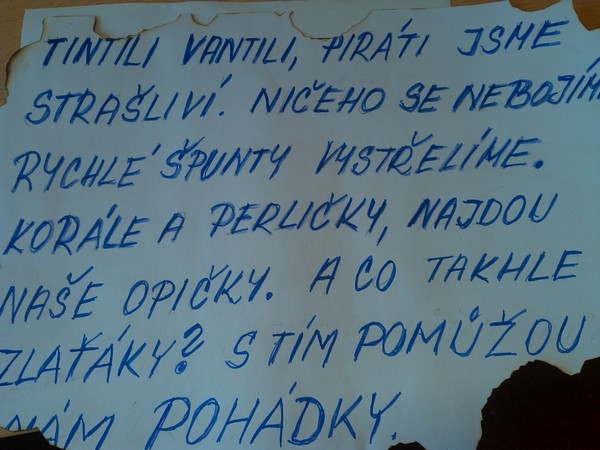 TINTILI VANTILI, PIRÁTI JSME
STRAŠLIVÍ. NIČEHO SE NEBOJÍME
RYCHLÉ ŠPUNTY VYSTŘELÍME.
KORÁLE A PERLIČKY, NAJDOU
NAŠE OPIČKY. A CO TAKHLE
ZLAŤÁKY? S TÍM POMŮŽOU
NÁM POHÁDKY.